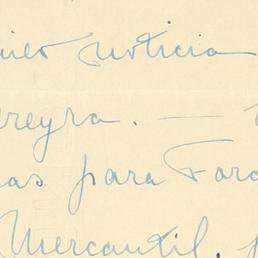 noticia
ereyra. —
as para Faro
Mercantil.